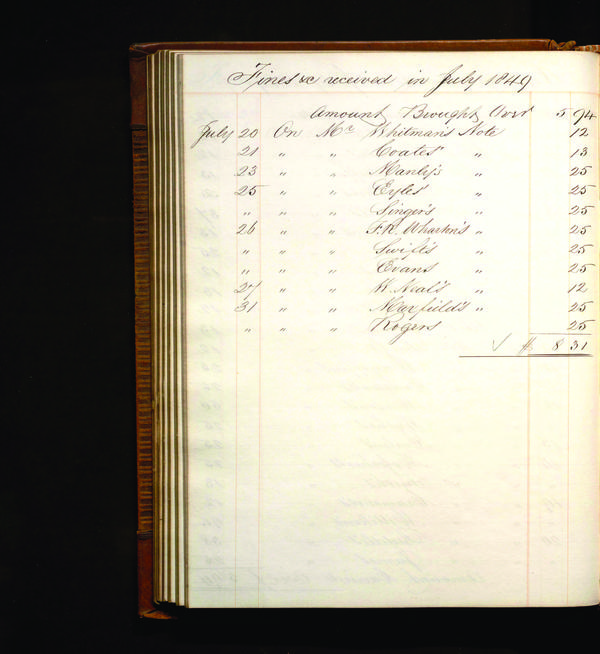 Fines &c received in July 1849
Amount Brought Over 5 94
July 20 On Mr Whitman's Note 12
21 " " Coates' " 13
23 " " Manly's " 25
25 " " Eyles' " 25
" " " Singer's " 25
26 " " F.R. Wharton's " 25
" " " Swift's " 25
" " " Evans " 25
27 " " W. Neal's " 12
31 " " Maxfield's " 25
" " " Rogers 25
√ $ 8 31